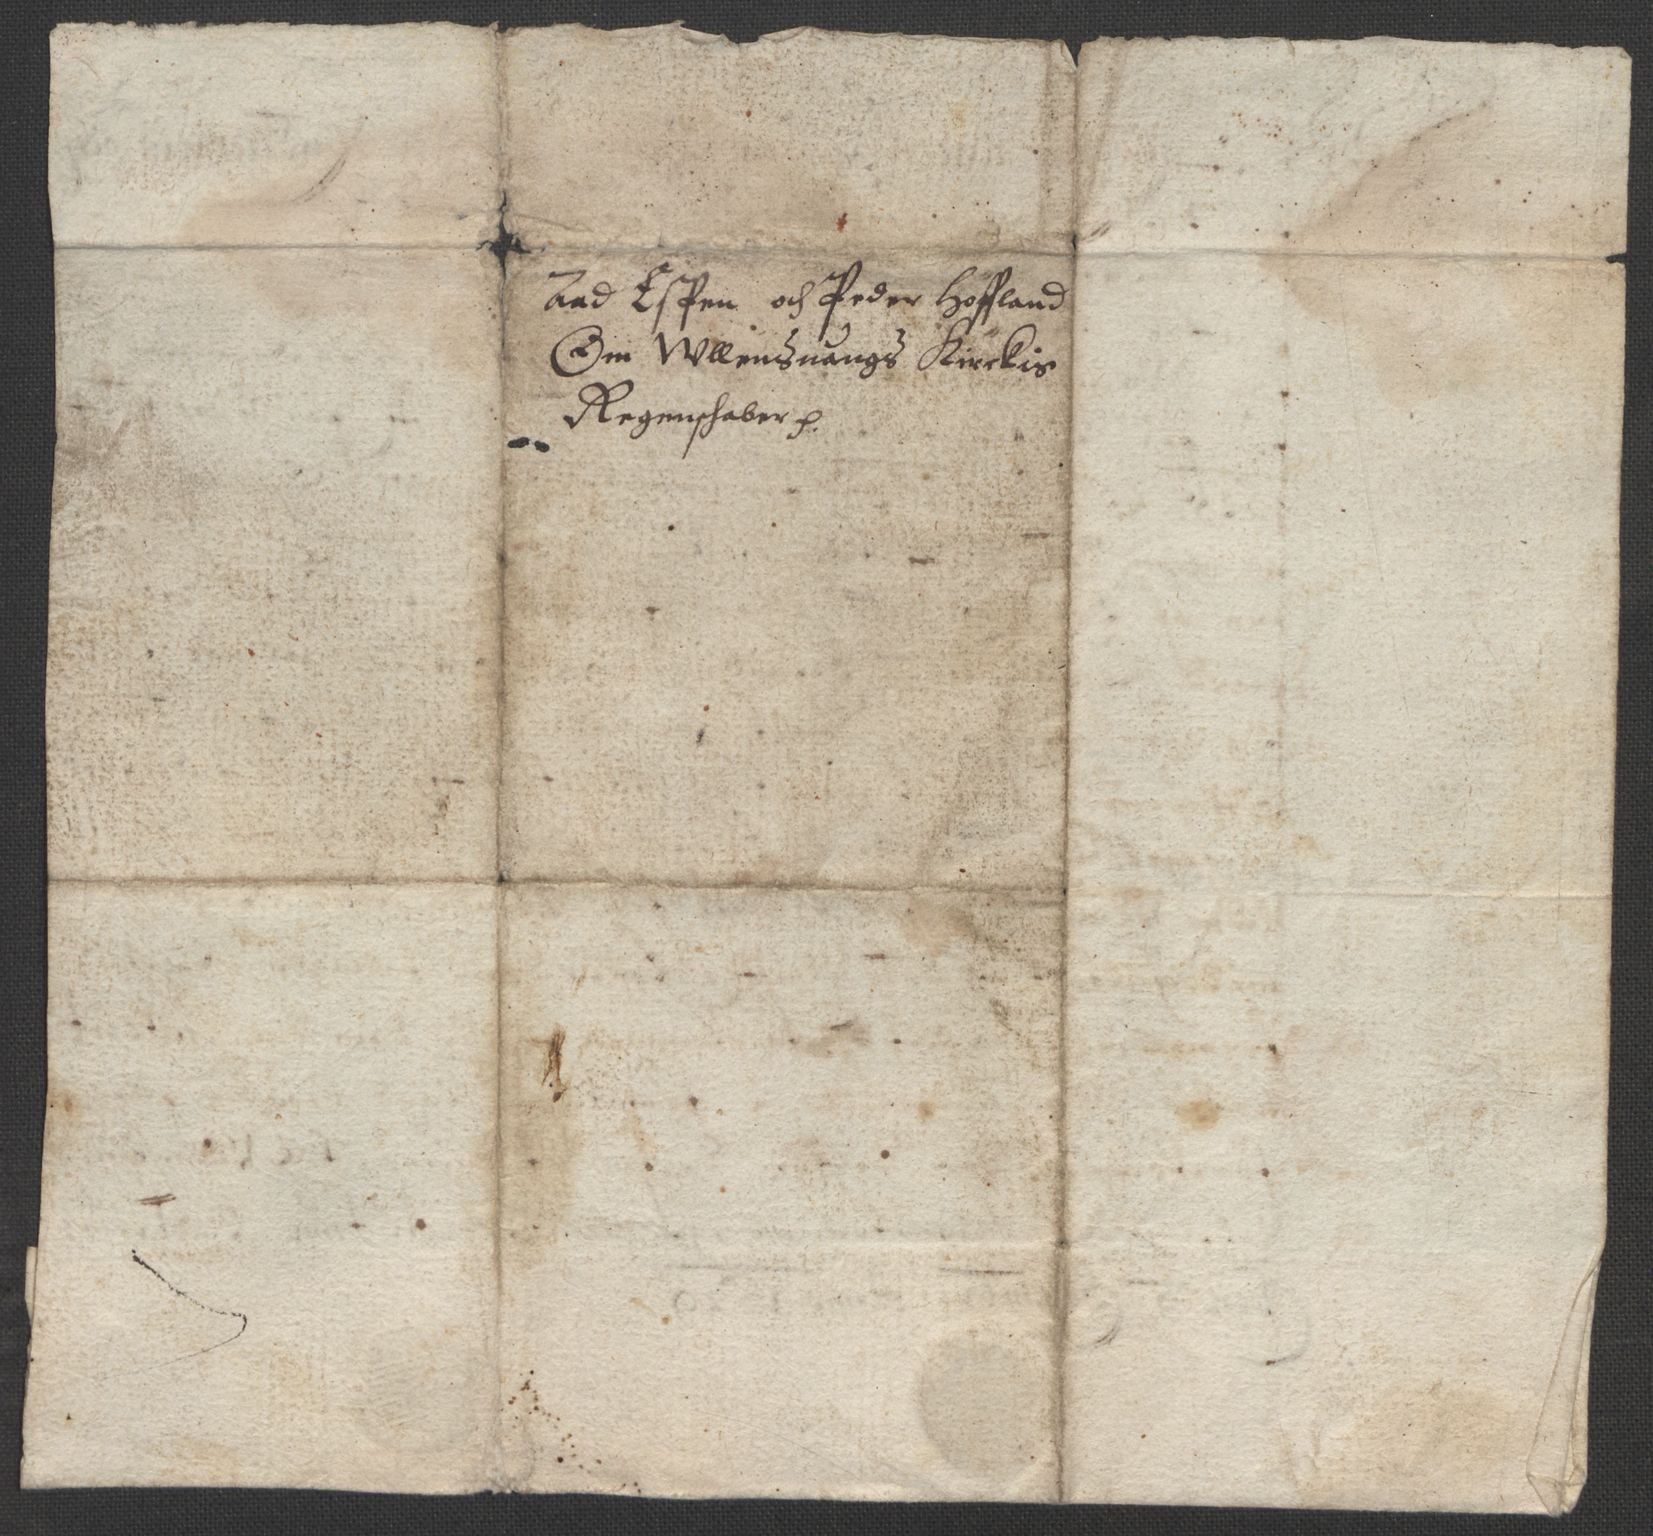 Aad Espen och Peder Hoffland
Om Wllensuangs Kirckis
Regenschaber